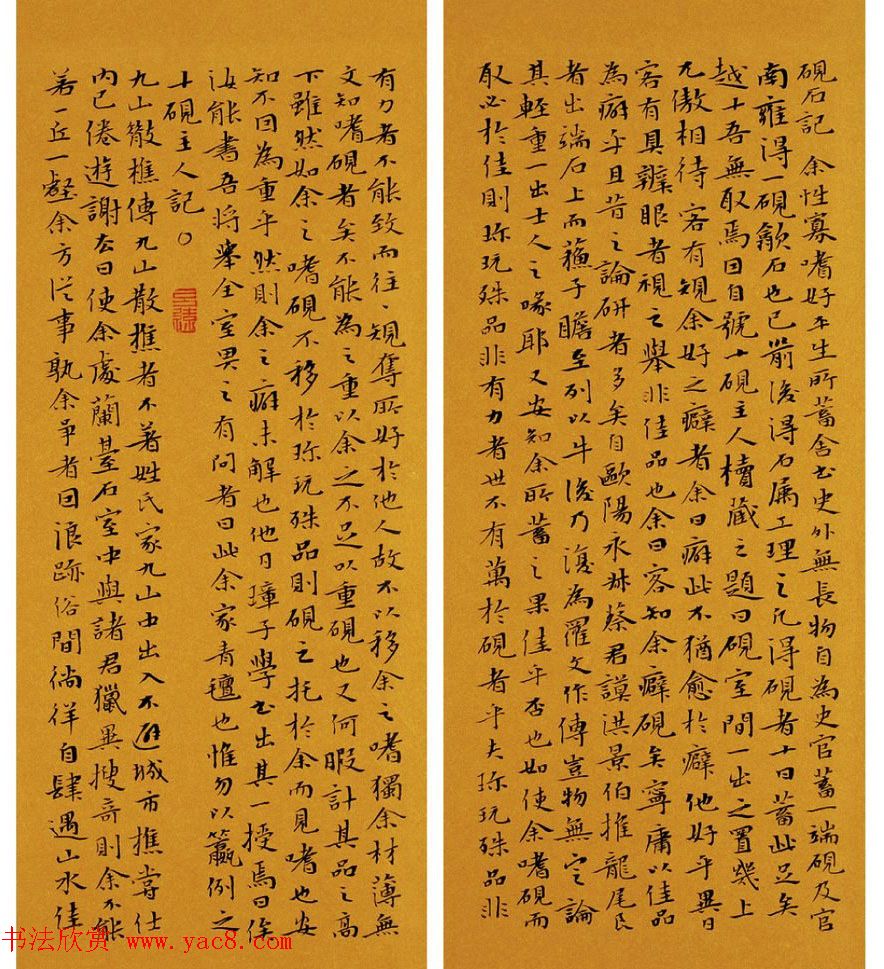 硯石記 余性寡嗜好平生所蓄舍書史外無長物自為史官蓄一端硯及官
南雍得一硯歙石也已前後得石屬工理之凡得硯者十曰蓄此足矣
越十吾無取焉因自號十硯主人櫝藏之題曰硯室間一出之置几上
兀傲相待客有規余好之癖者余曰癖此不猶愈於癖他好乎異日
客有具辨眼者視之舉非佳品也余曰客知余癖硯矣寧庸以佳品
為癖乎且昔之論研者多矣自歐陽永叔蔡君謨洪景伯推龍尾良
者出端石上而蘇子瞻至列以牛後乃復為羅文作傳豈物無定論
其輕重一出士人之喙耶又安知余所蓄之果佳乎否也如使余嗜硯而
取必於佳則珍玩殊品非有力者世不有萬於硯者乎夫珍玩殊品非
有力者不能致而往、規奪所好於他人故不以移余之嗜獨余材薄無
文知嗜硯者矣不能為之重以余之不足以重硯也又何暇計其品之高
下雖然如余之嗜硯不移於珍玩殊品則硯之托於余而見嗜也安
知不因為重乎然則余之癖未解也他日璋子學書出其一授焉曰俟
汝能書吾將舉全室畀之有問者曰此余家青氈也惟勿以籯例之
十硯主人記
九山散樵傳九山散樵者不著姓氏家九山中出入不避城市樵嘗仕
內已倦遊謝去曰使余處蘭臺石室中與諸君獵異搜奇則余不能
若一丘一壑余方從事孰余爭者因浪跡俗間徜徉自肆遇山水佳
书法欣赏 www.yac8.com